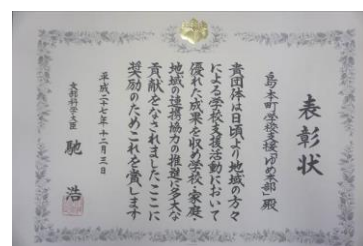 表彰状
島本町学校支援「ゆめ本部」殿
貴団体は日頃より地域の方々
による学校支援活動において
優れた成果を収め学校・家庭・
地域の連携協力の推進に多大な
貢献をなされましたここに
奨励のためこれを賞します
平成二十七年十二月三日
文部科学大臣 馳 浩